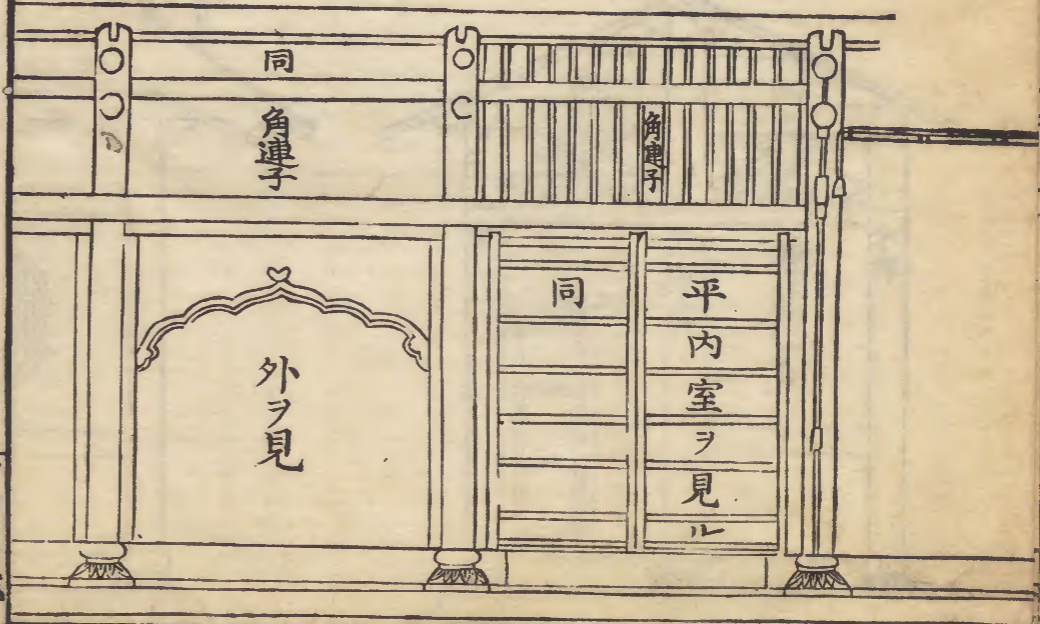 角連子
平内室ヲ見ル
同
同
角連子
外ヲ見